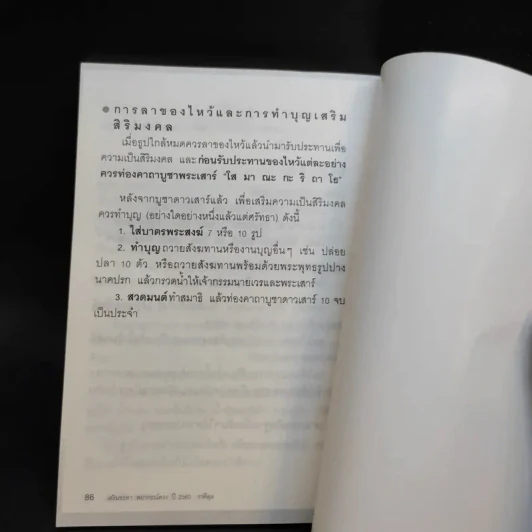 ● การลาของไหว้และการทำบุญเสริม
สิริมงคล
เมื่อธูปใกล้หมดควรลาของไหว้แล้วนำมารับประทานเพื่อ
ความเป็นสิริมงคล และก่อนรับประทานของไหว้แต่ละอย่าง
ควรท่องคาถาบูชาพระเสาร์ "โส มา ณะ กะ ริ ถา โธ"
หลังจากบูชาดาวเสาร์แล้ว เพื่อเสริมความเป็นสิริมงคล
ควรทำบุญ (อย่างใดอย่างหนึ่งแล้วแต่ศรัทธา) ดังนี้
1. ใส่บาตรพระสงฆ์ 7 หรือ 10 รูป
2. ทำบุญถวายสังฆทานหรืองานบุญอื่นๆ เช่น ปล่อย
ปลา 10 ตัว หรือถวายสังฆทานพร้อมด้วยพระพุทธรูปปาง
นาคปรก แล้วกรวดน้ำให้เจ้ากรรมนายเวรและพระเสาร์
3. สวดมนต์ทำสมาธิ แล้วท่องคาถาบูชาดาวเสาร์ 10 จบ
เป็นประจำ
86 ปี 2560 ราศีตุล